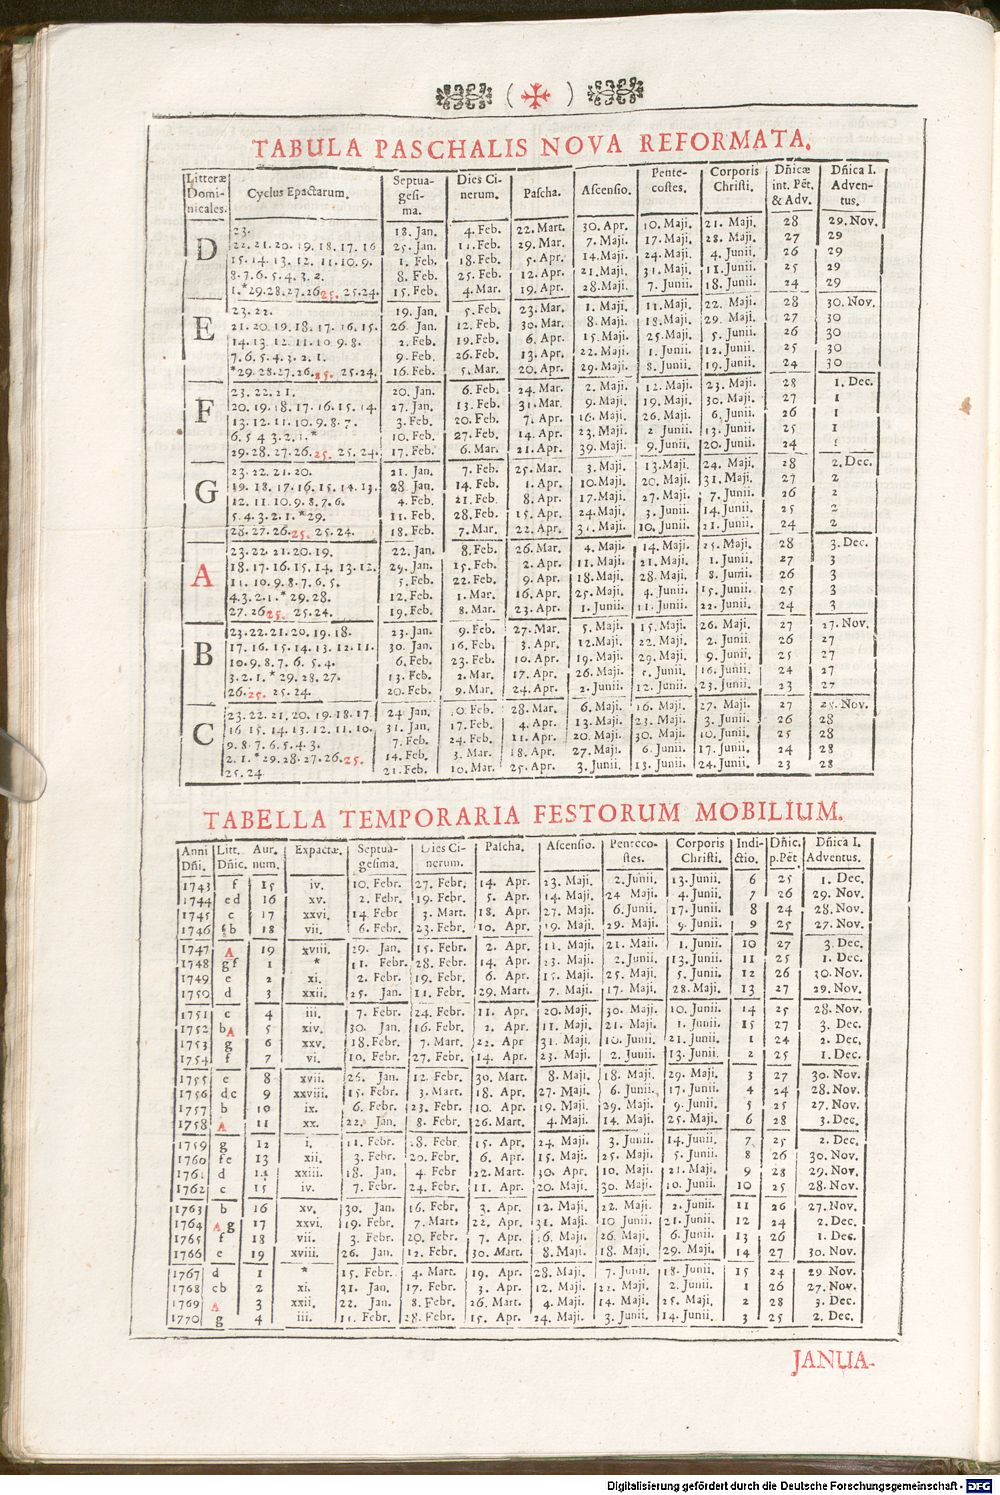 ( ✠ )
TABULA PASCHALIS NOVA REFORMATA.
Litteræ Domi- nicales. | Cyclus Epactarum. | Septua- gesi- ma. | Dies Ci- nerum. | Pascha. | Ascensio. | Pente- costes. | Corporis Christi. | Dñicæ int. Pēt. & Adv. | Dñica I. Adven- tus.
D | 23. | 18. Jan. | 4. Feb. | 22. Mart. | 30. Apr. | 10. Maji. | 21. Maji. | 28 | 29. Nov.
22. 21. 20. 19. 18. 17. 16 | 25. Jan. | 11. Feb. | 29. Mar. | 7. Maji. | 17. Maji. | 28. Maji. | 27 | 29
15. 14. 13. 12. 11. 10. 9. | 1. Feb. | 18. Feb. | 5. Apr. | 14. Maji. | 24. Maji. | 4. Junii. | 26 | 29
8. 7. 6. 5. 4. 3. 2. | 8. Feb. | 25. Feb. | 12. Apr. | 21. Maji. | 31. Maji. | 11. Junii. | 25 | 29
1. * 29. 28. 27. 26 25. 25. 24. | 15. Feb. | 4. Mar. | 19. Apr. | 28. Maji. | 7. Junii. | 18. Junii. | 24 | 29
E | 23. 22. | 19. Jan. | 5. Feb. | 23. Mar. | 1. Maji. | 11. Maji. | 22. Maji. | 28 | 30. Nov.
21. 20. 19. 18. 17. 16. 15. | 26. Jan. | 12. Feb. | 30. Mar. | 8. Maji. | 18. Maji. | 29. Maji. | 27 | 30
14. 13. 12. 11. 10. 9. 8. | 2. Feb. | 19. Feb. | 6. Apr. | 15. Maji. | 25. Maji. | 5. Junii. | 26 | 30
7. 6. 5. 4. 3. 2. 1. | 9. Feb. | 26. Feb. | 13. Apr. | 22. Maji. | 1. Junii. | 12. Junii. | 25 | 30
* 29. 28. 27. 26. 25. 25. 24. | 16. Feb. | 5. Mar. | 20. Apr. | 29. Maji. | 8. Junii. | 19. Junii. | 24 | 30
F | 23. 22. 21. | 20. Jan. | 6. Feb. | 24. Mar. | 2. Maji. | 12. Maji. | 23. Maji. | 28 | 1. Dec.
20. 19. 18. 17. 16. 15. 14. | 27. Jan. | 13. Feb. | 31. Mar. | 9. Maji. | 19. Maji. | 30. Maji. | 27 | 1
13. 12. 11. 10. 9. 8. 7. | 3. Feb. | 20. Feb. | 7. Apr. | 16. Maji. | 26. Maji. | 6. Junii. | 26 | 1
6. 5 4 3. 2. 1. * | 10. Feb. | 27. Feb. | 14. Apr. | 23. Maji. | 2 Junii. | 13. Junii. | 25 | 1
29. 28. 27. 26. 25. 25. 24. | 17. Feb. | 6. Mar. | 21. Apr. | 39. Maji. | 9. Junii. | 20. Junii. | 24
G | 23. 22. 21. 20. | 21. Jan. | 7. Feb. | 25. Mar. | 3. Maji. | 13. Maji. | 24. Maji. | 28 | 2. Dec.
19. 18. 17. 16. 15. 14. 13. | 28 Jan. | 14. Feb. | 1. Apr. | 10. Maji. | 20. Maji. | 31. Maji. | 27 | 2
12. 11. 10. 9. 8. 7. 6. | 4. Feb. | 21. Feb. | 8. Apr. | 17. Maji. | 27. Maji. | 7. Junii. | 26 | 2
5. 4. 3. 2. 1. * 29. | 11. Feb. | 28. Feb. | 15. Apr. | 24. Maji. | 3. Junii. | 14. Junii. | 25 | 2
28. 27. 26. 25. 25. 24. | 18. Feb. | 7. Mar. | 22. Apr. | 31. Maji. | 10. Junii. | 21. Junii. | 24 | 2
A | 23. 22. 21. 20. 19. | 22. Jan. | 8. Feb. | 26. Mar. | 4. Maji. | 14. Maji. | 25. Maji. | 28 | 3. Dec.
18. 17. 16. 15. 14. 13. 12. | 29. Jan. | 15. Feb. | 2. Apr. | 11. Maji. | 21. Maji. | 1. Junii. | 27 | 3
11. 10. 9. 8. 7. 6. 5. | 5. Feb. | 22. Feb. | 9. Apr. | 18. Maji. | 28. Maji. | 8. Junii. | 26 | 3
4. 3. 2. 1. * 29. 28. | 12. Feb. | 1. Mar. | 16. Apr. | 25. Maji. | 4. Junii. | 15. Junii. | 25 | 3
27. 26 25. 25. 24. | 19. Feb. | 8. Mar. | 23. Apr. | 1. Junii. | 11. Junii. | 22. Junii. | 24 | 3
B | 23. 22. 21. 20. 19. 18. | 23. Jan. | 9. Feb. | 27. Mar. | 5. Maji. | 15. Maji. | 26. Maji. | 27 | 27. Nov.
17. 16. 15. 14. 13. 12. 11. | 30. Jan. | 16. Feb. | 3. Apr. | 12. Maji. | 22. Maji. | 2. Junii. | 26 | 27
10. 9. 8. 7. 6. 5. 4. | 6. Feb. | 23. Feb. | 10. Apr. | 19. Maji. | 29. Maji. | 9. Junii. | 25 | 27
3. 2. 1. * 29. 28. 27. | 13. Feb. | 2. Mar. | 17. Apr. | 26. Maji. | 5. Junii. | 16. Junii. | 24 | 27
26. 25. 25. 24. | 20. Feb. | 9. Mar. | 24. Apr. | 2. Junii. | 12. Junii. | 23. Junii. | 23 | 27
C | 23. 22. 21. 20. 19. 18. 17. | 24 Jan. | 0. Feb. | 28. Mar. | 6. Maji. | 16. Maji. | 27. Maji. | 27 | 28. Nov.
16. 15. 14. 13. 12. 11. 10. | 31. Jan. | 17. Feb. | 4. Apr. | 13. Maji. | 23. Maji. | 3. Junii. | 26 | 28
9. 8. 7. 6. 5. 4. 3. | 7. Feb. | 24. Feb. | 11. Apr. | 20. Maji. | 30. Maji. | 10. Junii. | 25 | 28
2. 1. * 29. 28. 27. 26. 25. | 14. Feb. | 3. Mar. | 18. Apr. | 27. Maji. | 6. Junii. | 17. Junii. | 24 | 28
25. 24 | 21. Feb. | 10. Mar. | 25. Apr. | 3. Junii. | 13. Junii. | 24. Junii. | 23 | 28
TABELLA TEMPORARIA FESTORUM MOBILIUM.
Anni Dñi. | Litt. Dñic. | Aur. num. | Expactæ. | Septua- gesima. | Dies Ci- nerum. | Pascha. | Ascensio. | Penteco- stes. | Corporis Christi. | Indi- ctio. | Dñic. p. Pēt | Dñica I. Adventus.
1743 | f | 15 | iv. | 10. Febr. | 27. Febr. | 14. Apr. | 23. Maji. | 2. Junii. | 13. Junii. | 6 | 25 | 1. Dec.
1744 | ed | 16 | xv. | 2. Febr. | 19. Febr. | 5. Apr. | 14. Maji. | 24 Maji. | 4. Junii. | 7 | 26 | 29. Nov.
1745 | c | 17 | xxvi. | 14. Febr | 3. Mart. | 18. Apr. | 27. Maji. | 6. Junii. | 17. Junii. | 8 | 24 | 28. Nov.
1746 | b | 18 | vii. | 6. Febr. | 23. Febr. | 10. Apr. | 19. Maji. | 29. Maji. | 9. Junii. | 9 | 25 | 27. Nov.
1747 | A | 19 | xviii. | 29. Jan. | 15. Febr. | 2. Apr. | 11. Maji. | 21. Maii. | 1. Junii. | 10 | 27 | 3. Dec.
1748 | gf | 1 | * | 11. Febr. | 28. Febr. | 14. Apr. | 23. Maji. | 2. Junii. | 13. Junii. | 11 | 25 | 1. Dec.
1749 | e | 2 | xi. | 2. Febr. | 19. Febr. | 6. Apr. | 15. Maji. | 25. Maji. | 5. Junii. | 12 | 26 | 30. Nov.
1750 | d | 3 | xxii. | 25. Jan. | 11. Febr. | 29. Mart. | 7. Maji. | 17. Maji. | 28. Maji. | 13 | 27 | 29. Nov.
1751 | c | 4 | iii. | 7. Febr. | 24. Febr. | 11. Apr. | 20. Maji. | 30. Maji. | 10. Junii. | 14 | 25 | 28. Nov.
1752 | bA | 5 | xiv. | 30. Jan. | 16. Febr. | 2. Apr. | 11. Maji. | 21. Maji. | 1. Junii. | 15 | 27 | 3. Dec.
1753 | g | 6 | xxv. | 18. Febr. | 7. Mart. | 22. Apr | 31. Maji. | 10. Junii. | 21. Junii. | 1 | 24 | 2. Dec.
1754 | f | 7 | vi. | 10. Febr. | 27. Febr. | 14. Apr. | 23. Maji. | 2. Junii. | 13. Junii. | 2 | 25 | 1. Dec.
1755 | e | 8 | xvii. | 26. Jan. | 12. Febr. | 30. Mart. | 8. Maji. | 18. Maji. | 29. Maji. | 3 | 27 | 30. Nov.
1756 | dc | 9 | xxviii. | 15. Febr. | 3. Mart. | 18. Apr. | 27. Maji. | 6. Junii. | 17. Junii. | 4 | 24 | 28. Nov.
1757 | b | 10 | ix. | 6. Febr. | 23. Febr. | 10. Apr. | 19. Maji. | 29. Maji. | 9. Junii. | 5 | 25 | 27. Nov.
1758 | A | 11 | xx. | 22. Jan. | 8. Febr. | 26. Mart. | 4. Maji. | 14. Maji. | 25. Maji. | 6 | 28 | 3. Dec.
1759 | g | 12 | i. | 11. Febr. | 28. Febr. | 15. Apr. | 24. Maji. | 3. Junii. | 14. Junii. | 7 | 25 | 2. Dec.
1760 | fe | 13 | xii. | 3. Febr. | 20. Febr. | 6. Apr. | 15. Maji. | 25. Maji. | 5. Junii. | 8 | 26 | 30. Nov.
1761 | d | 14 | xxiii. | 18. Jan. | 4. Febr | 22. Mart. | 30. Apr. | 10. Maji. | 21. Maji. | 9 | 28 | 29. Nov.
1762 | c | 15 | iv. | 7. Febr. | 24. Febr. | 11. Apr. | 20. Maji. | 30. Maji. | 10. Junii. | 10 | 25 | 28. Nov.
1763 | b | 16 | xv. | 30. Jan. | 16. Febr. | 3. Apr. | 12. Maji. | 22. Maji. | 2. Junii. | 11 | 26 | 27. Nov.
1764 | A g | 17 | xxvi. | 19. Febr. | 7. Mart. | 22. Apr. | 31. Maji. | 10 Junii. | 21. Junii. | 12 | 24 | 2. Dec.
1765 | f | 18 | vii. | 3. Febr. | 20. Febr. | 7. Apr. | 16. Maji. | 26. Maji. | 6. Junii. | 13 | 26 | 1. Dec.
1766 | e | 19 | xviii. | 26. Jan. | 12. Febr. | 30. Mart. | 8. Maji. | 18. Maji. | 29. Maji. | 14 | 27 | 30. Nov.
1767 | d | 1 | * | 15. Febr. | 4. Mart. | 19. Apr. | 28. Maji. | 7. Junii. | 18. Junii. | 15 | 24 | 29 Nov.
1768 | cb | 2 | xi. | 31. Jan. | 17. Febr. | 3. Apr. | 12. Maji. | 22. Maji. | 2. Junii. | 1 | 26 | 27. Nov.
1769 | A | 3 | xxii. | 22. Jan. | 8. Febr. | 26. Mart. | 4. Maji. | 14. Maji. | 25. Maji. | 2 | 28 | 3. Dec.
1770 | g | 4 | iii. | 11. Febr. | 28. Febr. | 15. Apr. | 24. Maji. | 3. Junii. | 14. Junii. | 3 | 25 | 2. Dec.
JANUA-
Digitalisierung gefördert durch die Deutsche Forschungsgemeinschaft - DFG